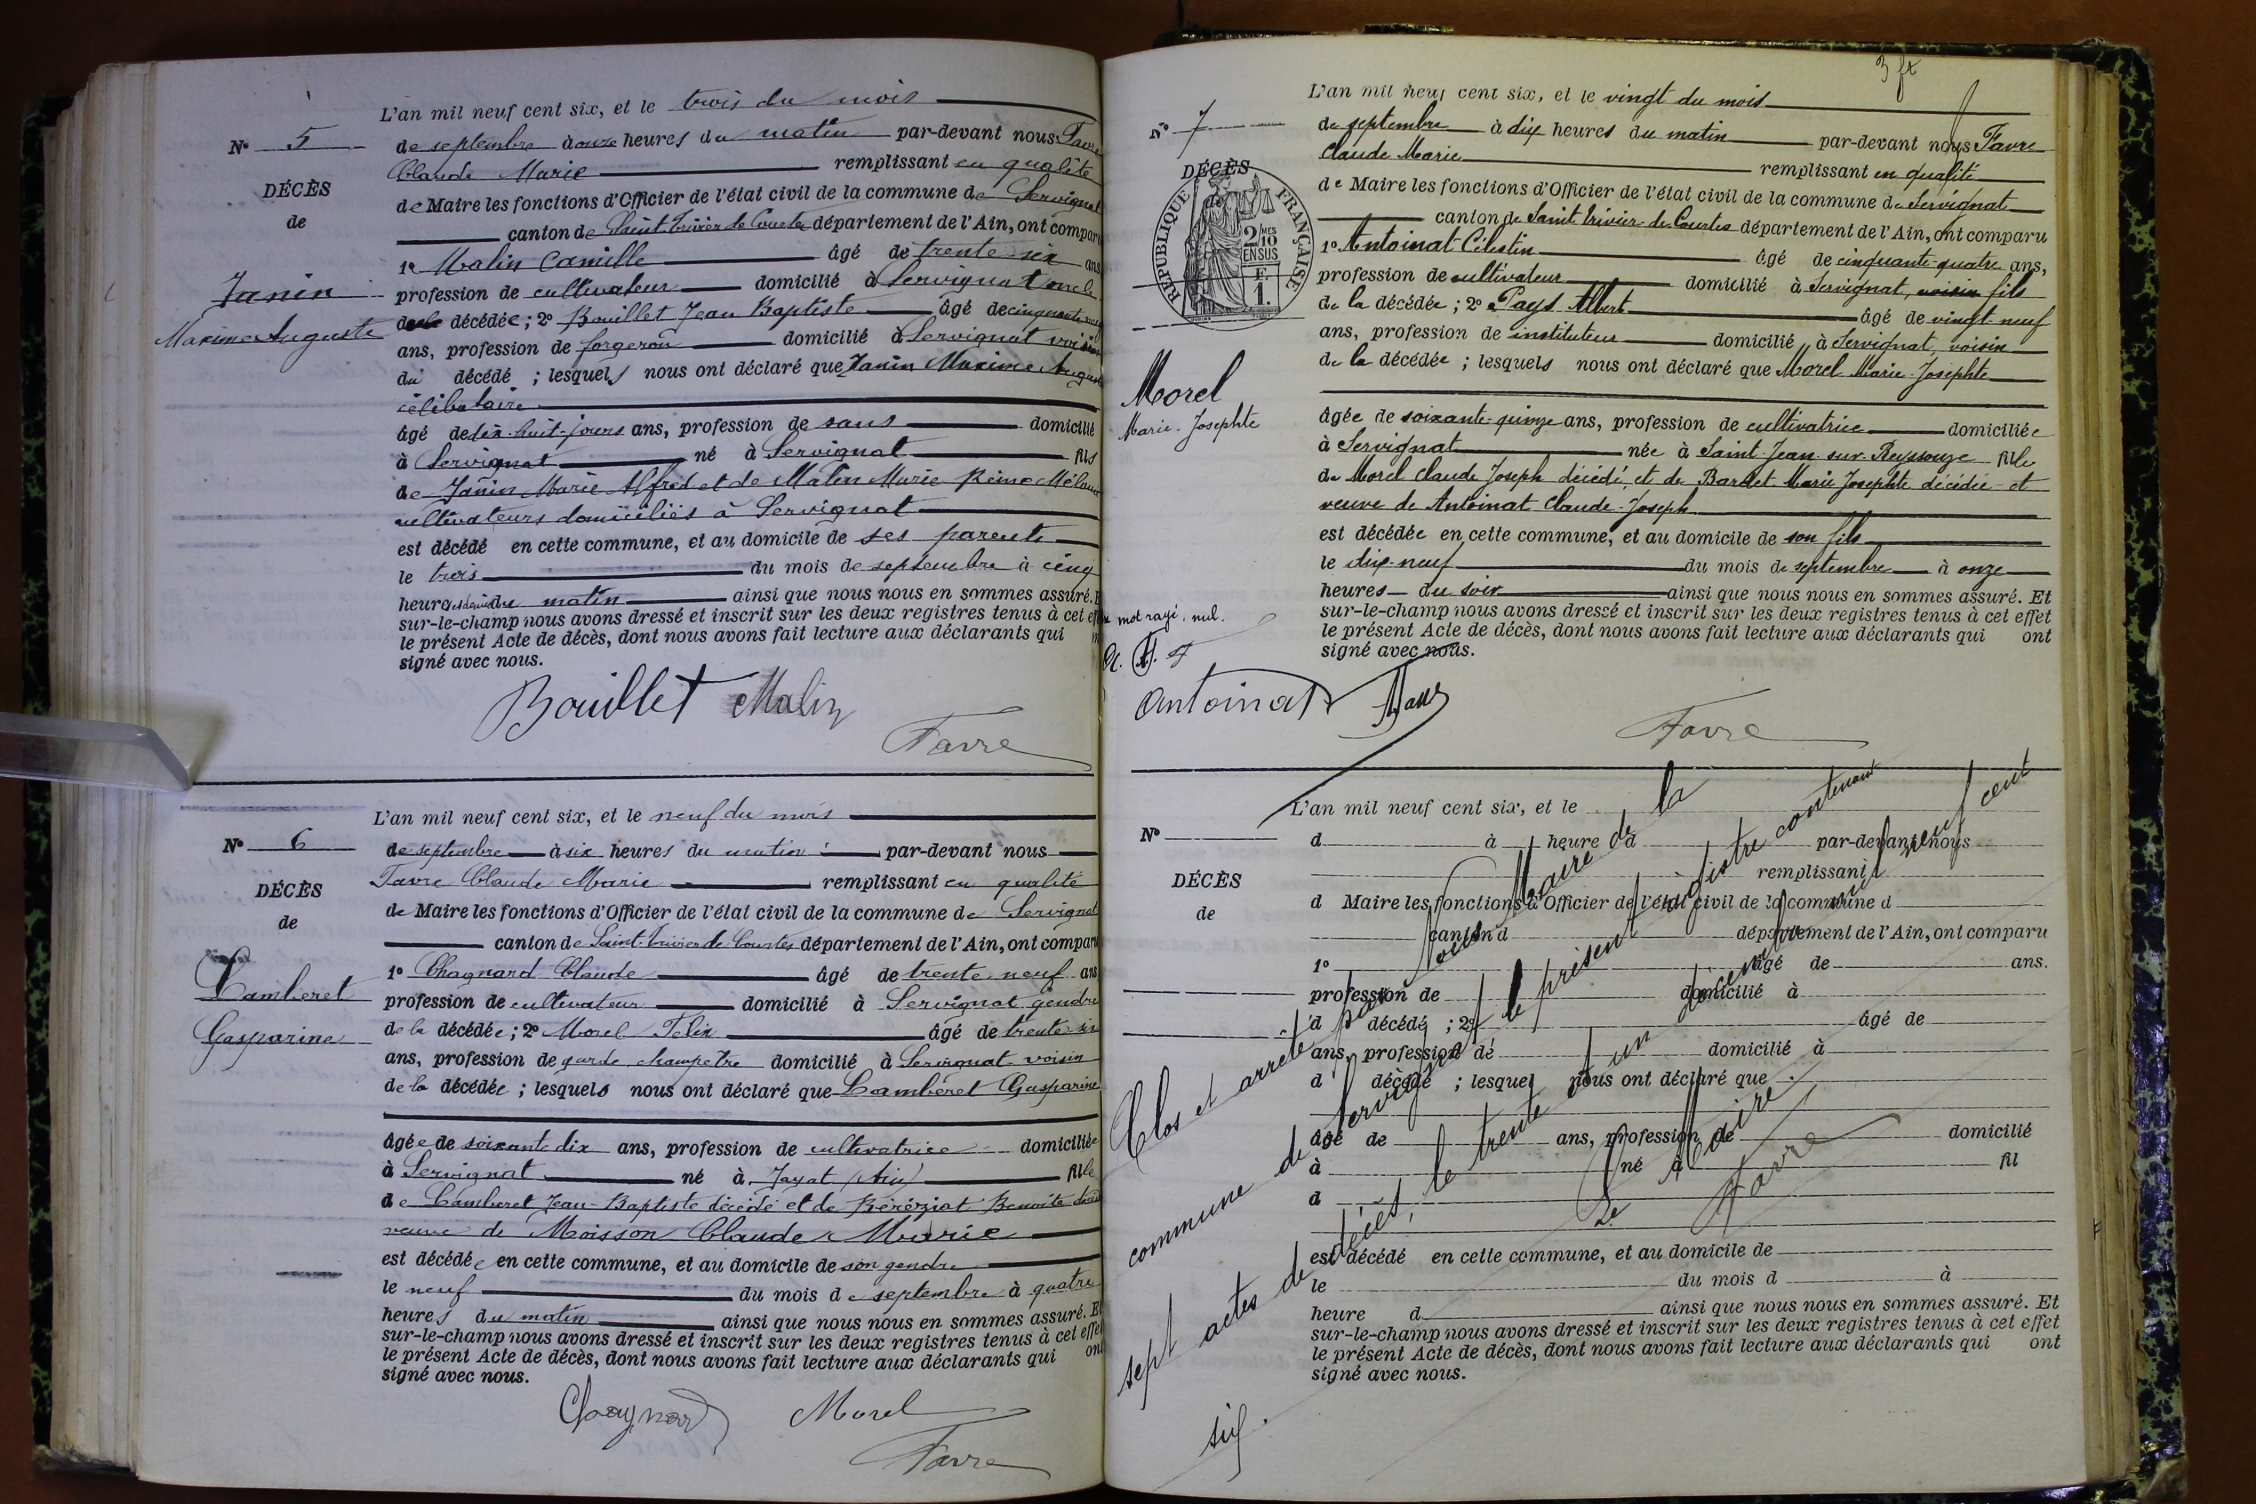 L'an mil neuf cent six, et le trois du mois
N° 5
de septembre à onze heures du matin par-devant nous Favre
Claude Marie remplissant en qualité
DÉCÈS
de Maire les fonctions d'Officier de l'état civil de la commune de Servignat
de
canton de Saint Trivier de Courtes département de l'Ain, ont comparu
1° Malin Camille âgé de trente six ans
Janin
profession de cultivateur domicilié à Servignat oncle
Maxime Auguste
décédée; 2° Bouillet Jean Baptiste âgé de cinquante
ans, profession de forgeron domicilié à Servignat voisin
du décédé ; lesquels nous ont déclaré que Janin Maxime Auguste
célibataire
âgé de dix-huit-jours ans, profession de sans domicilié
à Servignat né à Servignat fils
de Janin Marie Alfred et de Malin Marie Reine Mélanie
cultivateurs domiciliés à Servignat
est décédé en cette commune, et au domicile de ses parents
le trois du mois de septembre à cinq
heures et demie du matin ainsi que nous nous en sommes assuré. E
sur-le-champ nous avons dressé et inscrit sur les deux registres tenus à cet eff
le présent Acte de décès, dont nous avons fait lecture aux déclarants qui
signé avec nous.
Bouillet Malin
Favre
L'an mil neuf cent six, et le neuf du mois
N° 6
de septembre à six heures du matin par-devant nous
Favre Claude Marie remplissant en qualité
DÉCÈS
de Maire les fonctions d'Officier de l'état civil de la commune de Servignat
de
canton de Saint-Trivier de Courtes département de l'Ain, ont comparu
1° Chagnard Claude âgé de trente neuf ans
Lamberet
profession de cultivateur domicilié à Servignat gendre
Gasparine
de la décédée; 2° Morel Felix âgé de trente six
ans, profession de garde champetre domicilié à Servignat voisin
de la décédée ; lesquels nous ont déclaré que Lamberet Gasparine
âgée de soixante dix ans, profession de cultivatrice domiciliée
à Servignat né à Jayat (Ain) fille
de Lamberet Jean-Baptiste décédé et de Béréziat Benoite
veuve de Moisson Claude Marie
est décédée en cette commune, et au domicile de son gendre
le neuf du mois de septembre à quatre
heures du matin ainsi que nous nous en sommes assuré. Et
sur-le-champ nous avons dressé et inscrit sur les deux registres tenus à cet effet
le présent Acte de décès, dont nous avons fait lecture aux déclarants qui ont
signé avec nous.
Chagnard Morel
Favre
L'an mil neuf cent six, et le vingt du mois
N° 7
de septembre à dix heures du matin par-devant nous Favre
Claude Marie remplissant en qualité
DÉCÈS
de
RÉPUBLIQUE FRANÇAISE
2/10 MES
EN SUS
F.
1.
de Maire les fonctions d'Officier de l'état civil de la commune de Servignat
canton de Saint Trivier de Courtes département de l'Ain, ont comparu
1° Antoinat Célestin âgé de cinquante-quatre ans,
profession de cultivateur domicilié à Servignat, voisin fils
de la décédée ; 2° Pays Albert âgé de vingt-neuf
ans, profession de instituteur domicilié à Servignat, voisin
de la décédée ; lesquels nous ont déclaré que Morel Marie-Josephte
Morel
Marie-Josephte
âgée de soixante-quinze ans, profession de cultivatrice domiciliée
à Servignat née à Saint-Jean-sur-Reyssouze fille
de Morel Claude Joseph décédé, et de Bardet Marie Josephte décédée et
veuve de Antoinat Claude-Joseph
est décédée en cette commune, et au domicile de son fils
le dix-neuf du mois de septembre à onze
heures du soir ainsi que nous nous en sommes assuré. Et
sur-le-champ nous avons dressé et inscrit sur les deux registres tenus à cet effet
mot rayé, nul.
le présent Acte de décès, dont nous avons fait lecture aux déclarants qui ont
signé avec nous.
Antoinat
Favre
L'an mil neuf cent six, et le
N°
d à heure d par-devant nous
remplissant
DÉCÈS
d Maire les fonctions d'Officier de l'état civil de la commune d
de
canton d département de l'Ain, ont comparu
1° âgé de ans.
profession de domicilié à
d décédé ; 2° âgé de
ans, profession de domicilié à
d décédé ; lesquel nous ont déclaré que
âgé de ans, profession de domicilié
à né à fil
d
est décédé en cette commune, et au domicile de
le du mois d à
heure d ainsi que nous nous en sommes assuré. Et
sur-le-champ nous avons dressé et inscrit sur les deux registres tenus à cet effet
le présent Acte de décès, dont nous avons fait lecture aux déclarants qui ont
signé avec nous.
Clos et arrêté par Nous Maire de la
commune de Servignat le présent registre contenant
sept actes de décès, le trente et un décembre mil neuf cent
six.
Le Maire
Favre